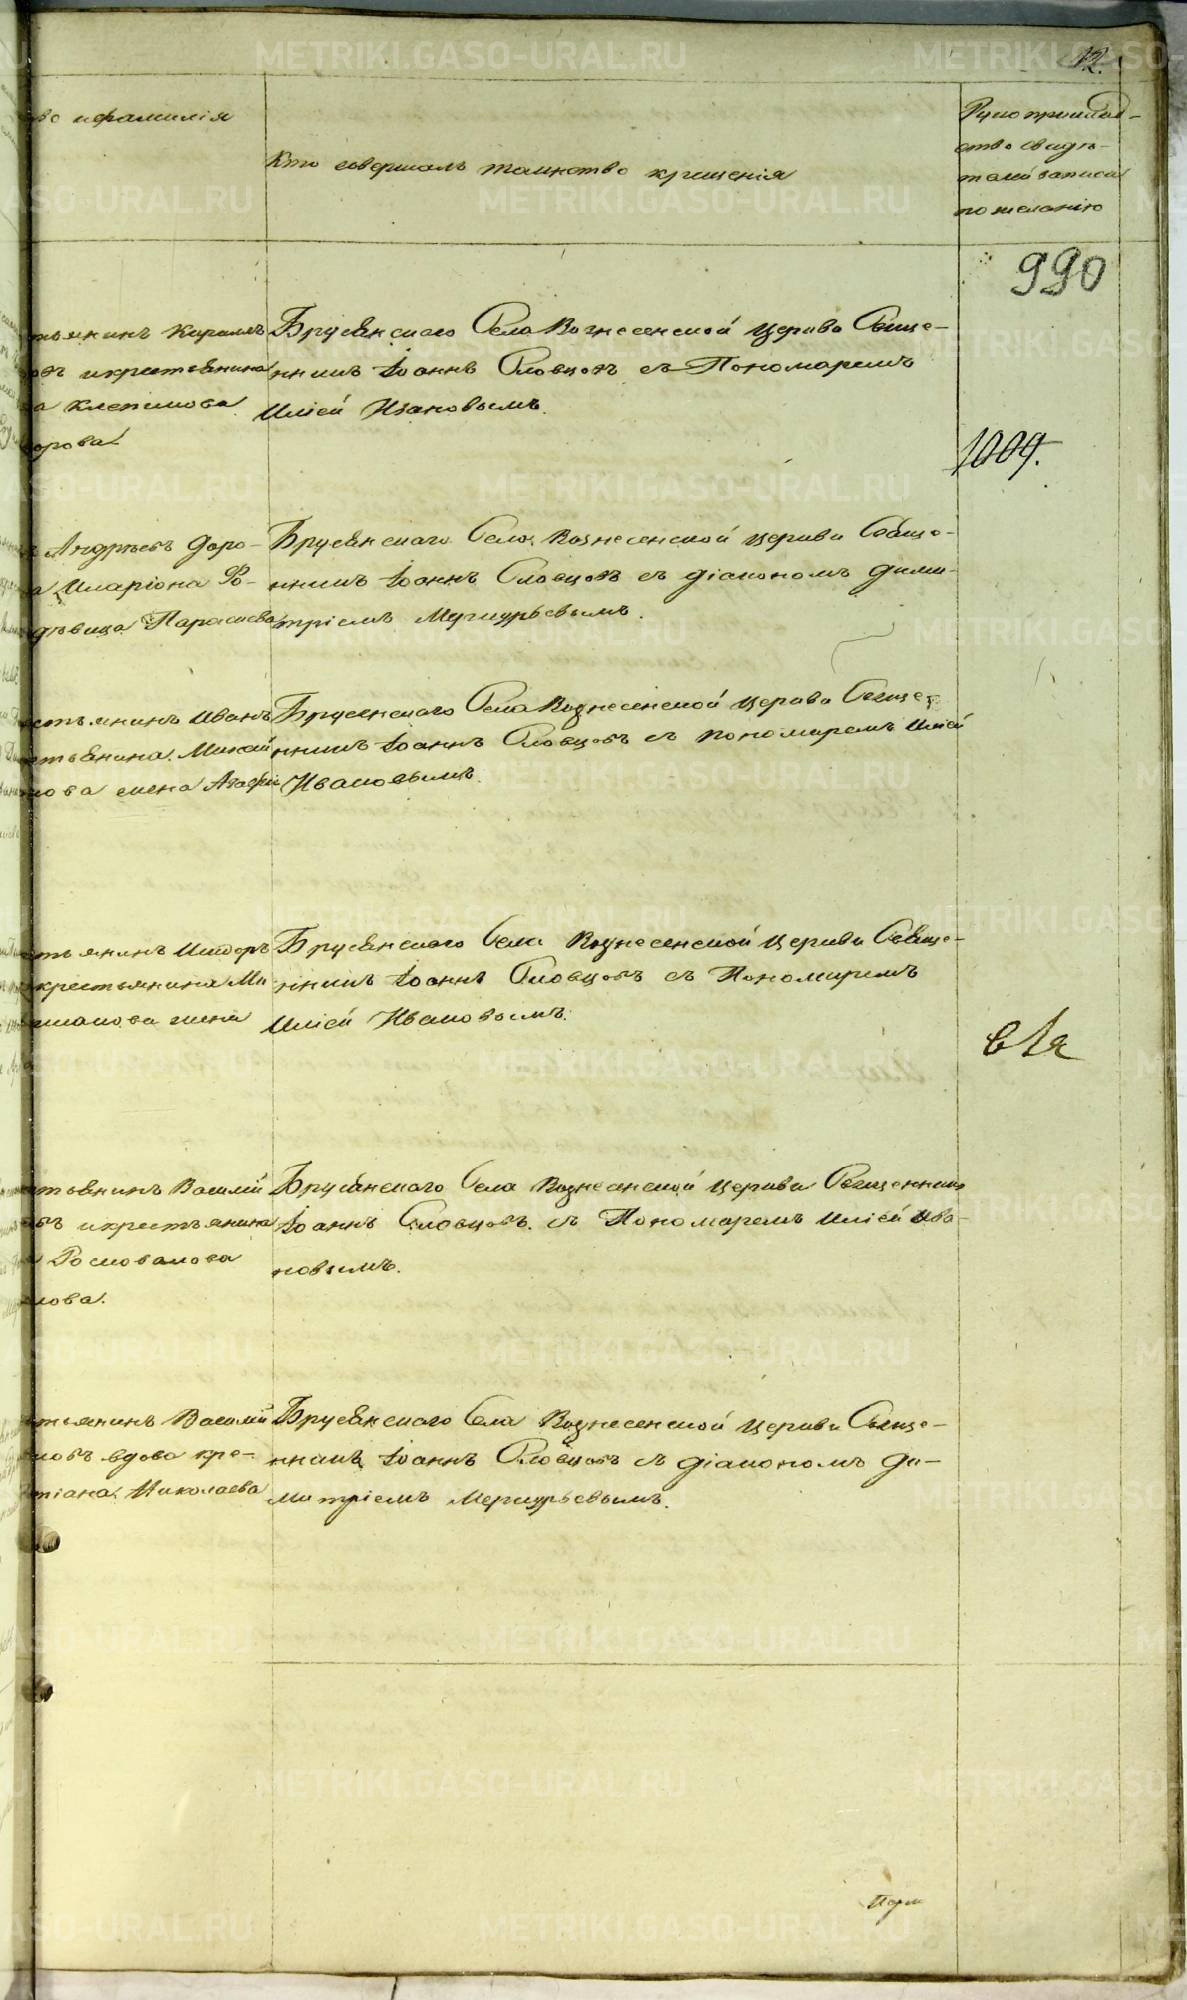 12.
во и фамилія
Кто совершалъ таинство крещенія
Рукоприклад-
ство свидѣ-
телей записи
по желанію
990
тьянинъ Кирилъ
овъ и крестьянина
ва Клепикова
орова.
Брусянскаго Села Вознесенской церкви Свяще-
нникъ Іоаннъ Словцовъ съ Пономаремъ
Иліей Ивановымъ.
1009.
Андреевъ Доро-
а Иларіона Ро-
дѣвица Параскева
Брусянскаго Села Вознесенской церкви Свяще-
нникъ Іоаннъ Словцовъ съ діакономъ Дими-
тріемъ Меркурьевымъ.
стьянинъ Иванъ
стьянина Михаи
кова жена Агафiи
Брусянскаго Села Вознесенской церкви Свяще-
нникъ Іоаннъ Словцовъ съ пономаремъ Иліей
Ивановымъ.
тьянинъ Исидоръ
крестьянина Ми
жена
Брусянскаго Села Вознесенской церкви Свяще-
нникъ Іоаннъ Словцовъ съ Пономаремъ
Иліей Ивановымъ.
тьянинъ Василій
въ и крестьянина
Росковалова
лова.
Брусянскаго Села Вознесенской церкви Священникъ
Іоаннъ Словцовъ съ Пономаремъ Иліей Ива-
новымъ.
тьянинъ Василій
новъ вдова кре-
тіана Николаева
Брусянскаго Села Вознесенской церкви Свяще-
нникъ Іоаннъ Словцовъ съ діакономъ Ди-
митріемъ Меркурьевымъ.
METRIKI.GASO-URAL.RU